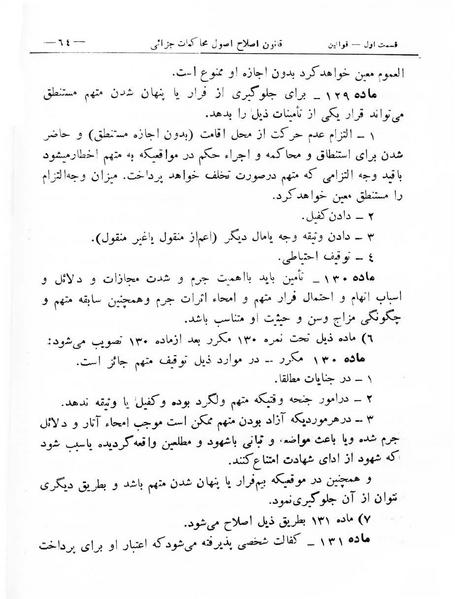 قسمت اول — قوانین قانون اصلاح اصول محاکمات جزائی —٦٤—
العموم معین خواهد کرد بدون اجازه او ممنوع است.
ماده ۱۲۹ — برای جلوگیری از فرار یا پنهان شدن متهم مستنطق
می‌تواند قرار یکی از تأمینات ذیل را بدهد.
۱ — التزام عدم حرکت از محل اقامت (بدون اجازه مستنطق) و حاضر
شدن برای استنطاق و محاکمه و اجراء حکم در مواقعیکه به متهم اخطار میشود
باقید وجه التزامی که متهم درصورت تخلف خواهد پرداخت. میزان وجه‌التزام
را مستنطق معین خواهد کرد.
۲ — دادن کفیل.
۳ — دادن وثیقه وجه یامال دیگر (اعم‌از منقول یاغیر منقول).
٤ — توقیف احتیاطی.
ماده ۱۳۰ — تأمین باید بااهمیت جرم و شدت مجازات و دلائل و
اسباب اتهام و احتمال قرار متهم و امحاء اثرات جرم وهمچنین سابقه متهم و
چگونگی مزاج وسن و حیثیت او متناسب باشد.
٦) ماده ذیل تحت نمره ۱۳۰ مکرر بعد ازماده ۱۳۰ تصویب می‌شود:
ماده ۱۳۰ مکرر — در موارد ذیل توقیف متهم جائز است.
۱ — در جنایات مطلقا.
۲ — درامور جنحه وقتیکه متهم ولگرد بوده وکفیل یا وثیقه ندهد.
۳ — درهرموردیکه آزاد بودن متهم ممکن است موجب امحاء آثار و دلائل
جرم شده ویا باعث مواضعه و تبانی باشهود و مطلعین واقعه گردیده یاسبب شود
که شهود از ادای شهادت امتناع کنند.
و همچنین در موقعیکه بیم‌فرار یا پنهان شدن متهم باشد و بطریق دیگری
نتوان از آن جلوگیری‌نمود.
۷) ماده ۱۳۱ بطریق ذیل اصلاح می‌شود.
ماده ۱۳۱ — کفالت شخصی پذیرفته می‌شودکه اعتبار او برای پرداخت